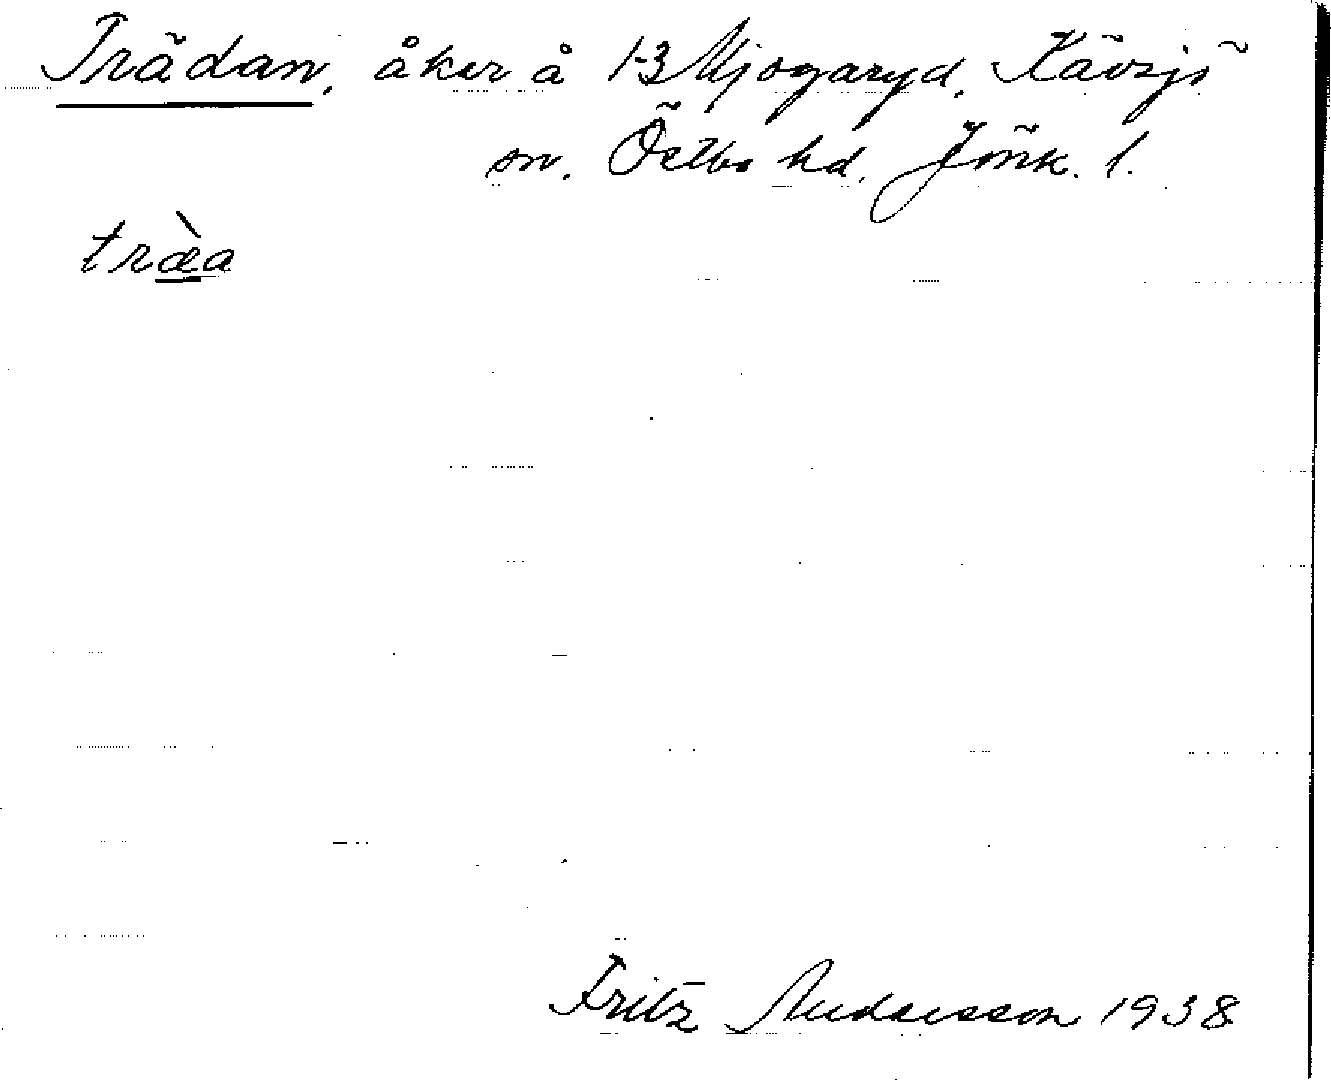 Trädan, åker å 1-3 Mjogaryd, Kävsjö
sn. Östbo hd. Jönk. l.
træ̀a
Fritz Andersson 1938